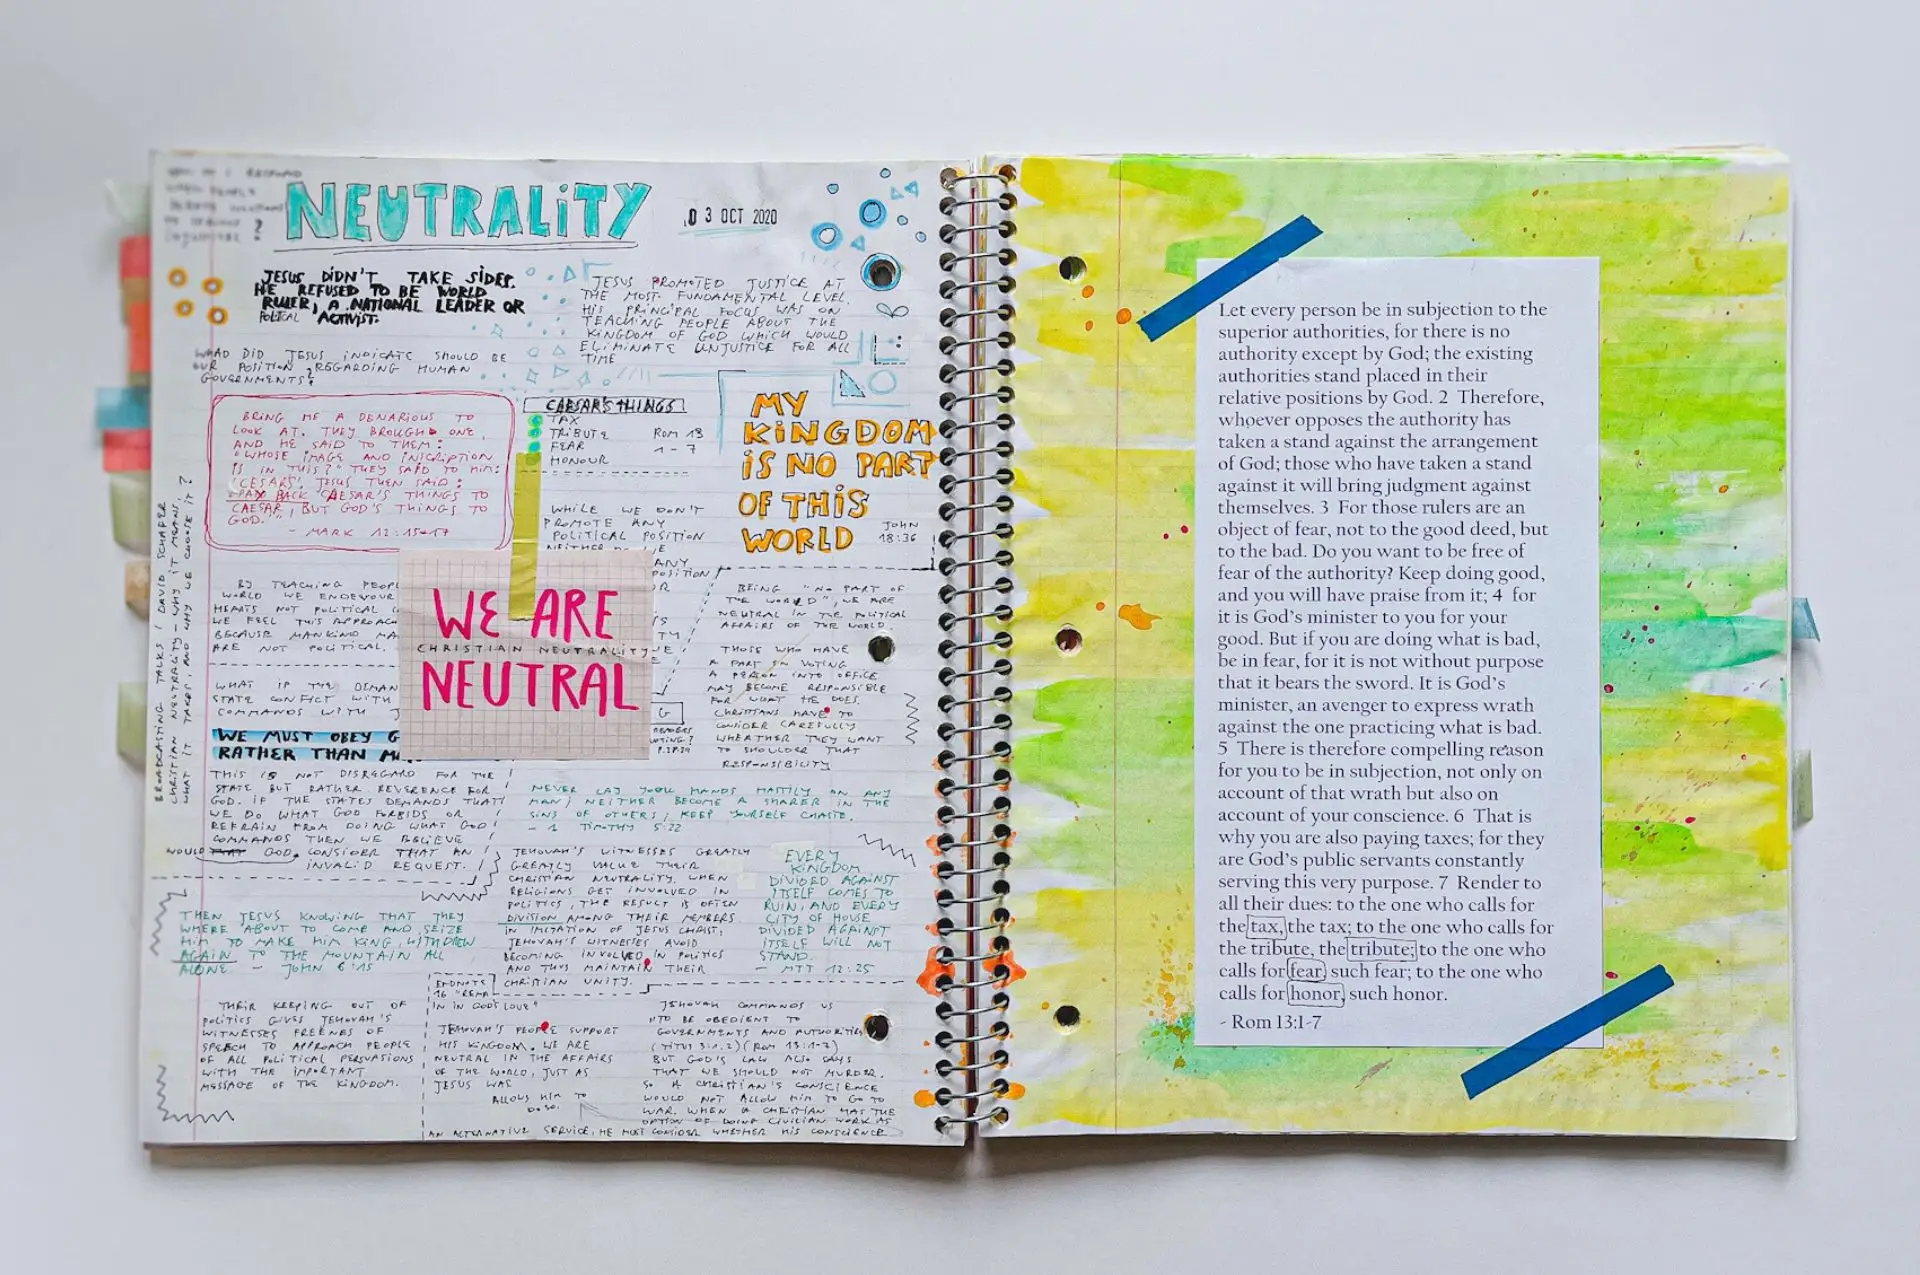 NEUTRALITY
03 OCT 2020
JESUS DIDN'T TAKE SIDES.
HE REFUSED TO BE WORLD
RULER, A NATIONAL LEADER OR
POLITCAL ACTIVIST.
JESUS PROMOTED JUSTICE AT
THE MOST FUNDAMENTAL LEVEL.
HIS PRINCIPAL FOCUS WAS ON
TEACHING PEOPLE ABOUT THE
KINGDOM OF GOD WHICH WOULD
ELIMINATE UNJUSTICE FOR ALL
TIME
WHAD DID JESUS INDICATE SHOULD BE
OUR POSITION REGARDING HUMAN
GOVERNMENTS?
BRING ME A DENARIOUS TO
LOOK AT. THEY BROUGHT ONE,
AND HE SAID TO THEM:
"WHOSE IMAGE AND INICRIPTION
IS IN THIS?" THEY SAID TO HIM:
"CESARS'. JESUS THEN SAID:
"PAY BACK CAESAR'S THINGS TO
CAESAR, BUT GOD'S THINGS TO
GOD."
- MARK 12:15-17
CAESAR'S THINGS
TAX
TRIBUTE ROM 13
FEAR 1-7
HONOUR
MY
KINGDOM
IS NO PART
OF THIS
WORLD
JOHN
18:36
WHILE WE DON'T
PROMOTE ANY
POLITICAL POSITION
NEITHER DO WE
ANY
POSITION
BY TEACHING PEOPL
WORLD WE ENDEAVOUR
HEARTS NOT POLITICAL
WE FEEL THIS APPROACH
BECAUSE MANKIND MA
ARE NOT POLITICAL.
WE ARE
CHRISTIAN NEUTRALITY
NEUTRAL
BEING "NO PART OF
THE WORLD", WE ARE
NEUTRAL IN THE POLITICAL
AFFAIRS OF THE WORLD.
THOSE WHO HAVE
A PART IN VOTING
A PERSON INTO OFFICE
MAY BECOME RESPONSIBLE
FOR WHAT HE DOES.
CHRISTIANS HAVE TO
CONIDER CAREFULLY
WHEATHER THEY WANT
TO SHOULDER THAT
RESPONSIBILITY
BROADCASTING TALKS / DAVID SCHAFER
CHRISTIAN NEUTRALITY - WHY IT MEANS,
WHAT IT TAKES, AND WHY WE CHOOSE IT?
WHAT IF THE DEMAN
STATE CONFICT WITH
COMMANDS WITH J
WE MUST OBEY G
RATHER THAN MA
THIS IS NOT DISREGARD FOR THE
STATE BUT RATHER REVERENCE FOR
GOD. IF THE STATES DEMANDS THAT
WE DO WHAT GOD FORBIDS OR
REFRAIN FROM DOING WHAT GOD
COMMANDS THEN WE BELIEVE
WOULD THAT GOD CONSIDER THAT AN
INVALID REQUEST.
NEVER LAY YOUR HANDS HASTILY ON ANY
MAN; NEITHER BECOME A SHARER IN THE
SINS OF OTHERS; KEEP YOURSELF CHASTE.
- 1 TIMOTHY 5:22
JEHOVAH'S WITNESSES GREATLY
GREATLY VALUE THEIR
CHRISTIAN NEUTRALITY. WHEN
RELIGIONS GET INVOLVED IN
POLITICS, THE RESULT IS OFTEN
DIVISION AMONG THEIR MEMBERS
IN IMITATION OF JESUS CHRIST,
JEHOVAH'S WITNESSES AVOID
BECOMING INVOLVED IN POLITICS
AND THUS MAINTAIN THEIR
CHRISTIAN UNITY.
EVERY
KINGDOM
DIVIDED AGAINST
ITSELF COMES TO
RUIN, AND EVERY
CITY OF HOUSE
DIVIDED AGAINST
ITSELF WILL NOT
STAND.
- MTT 12:25
THEN JESUS KNOWING THAT THEY
WHERE ABOUT TO COME AND SEIZE
HIM TO MAKE HIM KING, WITHDREW
AGAIN TO THE MOUNTAIN ALL
ALONE - JOHN 6:15
THEIR KEEPING OUT OF
POLITICS GIVES JEHOVAH'S
WITNESSES FREENES OF
SPEECH TO APPROACH PEOPLE
OF ALL POLITICAL PERSVATIONS
WITH THE IMPORTANT
MESSAGE OF THE KINGDOM.
ENDNOTE
16 "REMA
IN IN GOD'S LOVE"
JEHOVAH'S PEOPLE SUPPORT
HIS KINGDOM. WE ARE
NEUTRAL IN THE AFFAIRS
OF THE WORLD, JUST AS
JESUS WAS
JEHOVAH COMMANDS US
TO BE OBEDIENT TO
GOVERNMENTS AND AUTHORITIES
(TITUS 3:1,2) (ROM 13:1-7)
BUT GOD'S LAW ALSO SAYS
THAT WE SHOULD NOT MURDER.
SO A CHRISTIAN'S CONSCIENCE
WOULD NOT ALLOW HIM TO GO TO
WAR. WHEN A CHRISTIAN HAS THE
OPTION OF DOING CIVILIAN WORK AS
AN ALTERNATIVE SERVICE, HE MUST CONSIDER WHETHER HIS CONSCIENCE
ALLOWS HIM TO
DO SO.
Let every person be in subjection to the
superior authorities, for there is no
authority except by God; the existing
authorities stand placed in their
relative positions by God. 2 Therefore,
whoever opposes the authority has
taken a stand against the arrangement
of God; those who have taken a stand
against it will bring judgment against
themselves. 3 For those rulers are an
object of fear, not to the good deed, but
to the bad. Do you want to be free of
fear of the authority? Keep doing good,
and you will have praise from it; 4 for
it is God's minister to you for your
good. But if you are doing what is bad,
be in fear, for it is not without purpose
that it bears the sword. It is God's
minister, an avenger to express wrath
against the one practicing what is bad.
5 There is therefore compelling reason
for you to be in subjection, not only on
account of that wrath but also on
account of your conscience. 6 That is
why you are also paying taxes; for they
are God's public servants constantly
serving this very purpose. 7 Render to
all their dues: to the one who calls for
the tax, the tax; to the one who calls for
the tribute, the tribute; to the one who
calls for fear, such fear; to the one who
calls for honor, such honor.
- Rom 13:1-7